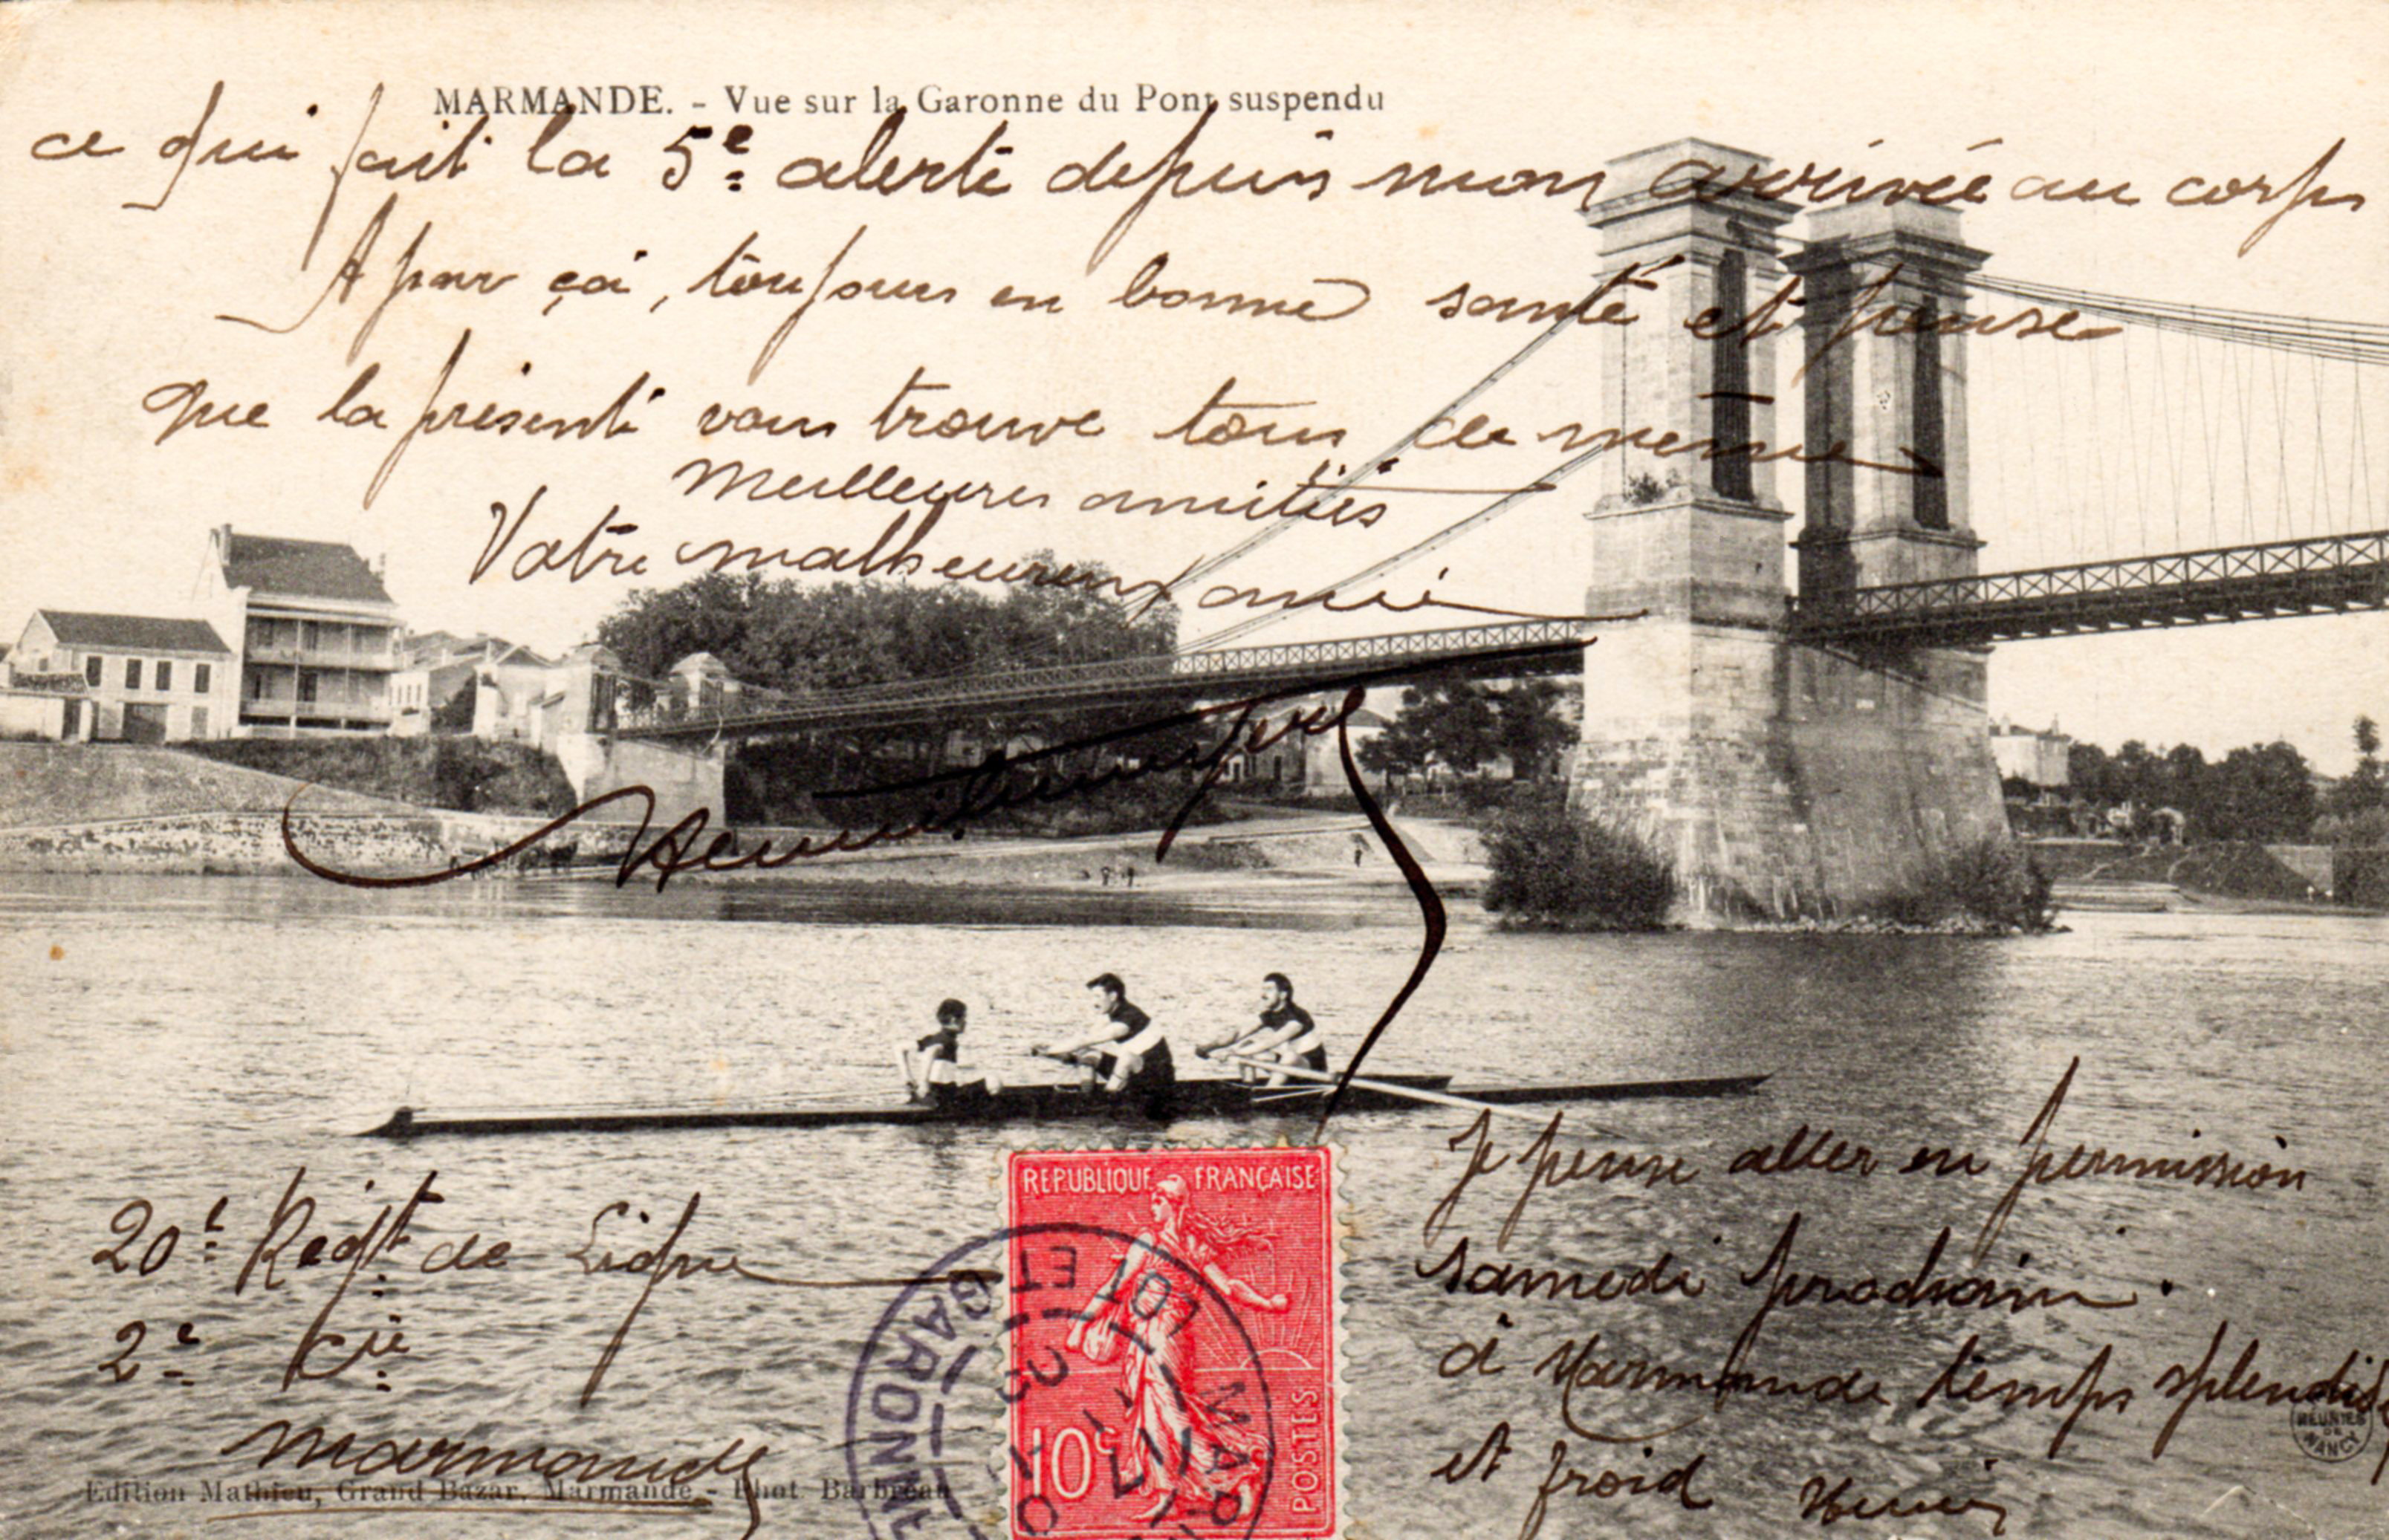 MARMANDE. - Vue sur la Garonne du Pont suspendu
ce qui fait la 5e alerte depuis mon arrivée au corps
A par ça, toujours en bonne santé et pense
que la présente vous trouve tous de même
Meilleures amitiés
Votre malheureux ami
20e Regt de Ligne
2e Cie
Marmande
Je pense aller en permission
samedi prochain.
à Marmande temps splendide
et froid Henri
REPUBLIQUE FRANÇAISE
10c
POSTES
LOT ET GARONNE
REUNIES
DE
NANCY
Edition Mathieu, Grand Bazar, Marmande - Phot. Barbreau